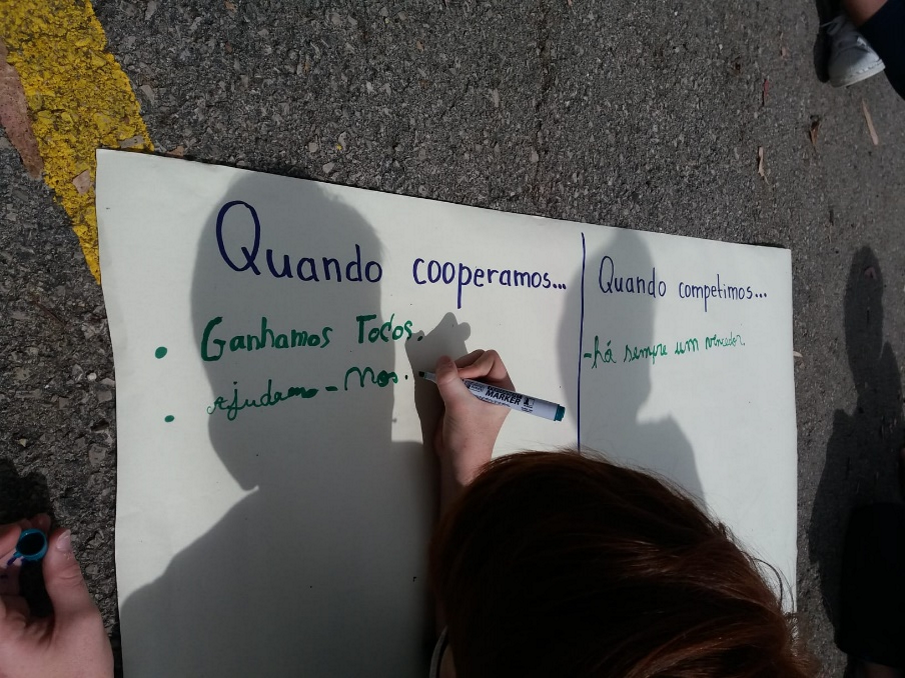 Quando cooperamos...
• Ganhamos Todos.
• Ajudamo-Nos.
Quando competimos...
-há sempre um vencedor.
MARKER